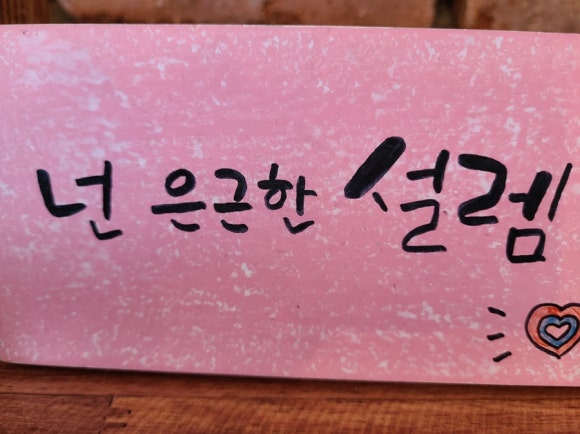 넌 은근한 설렘